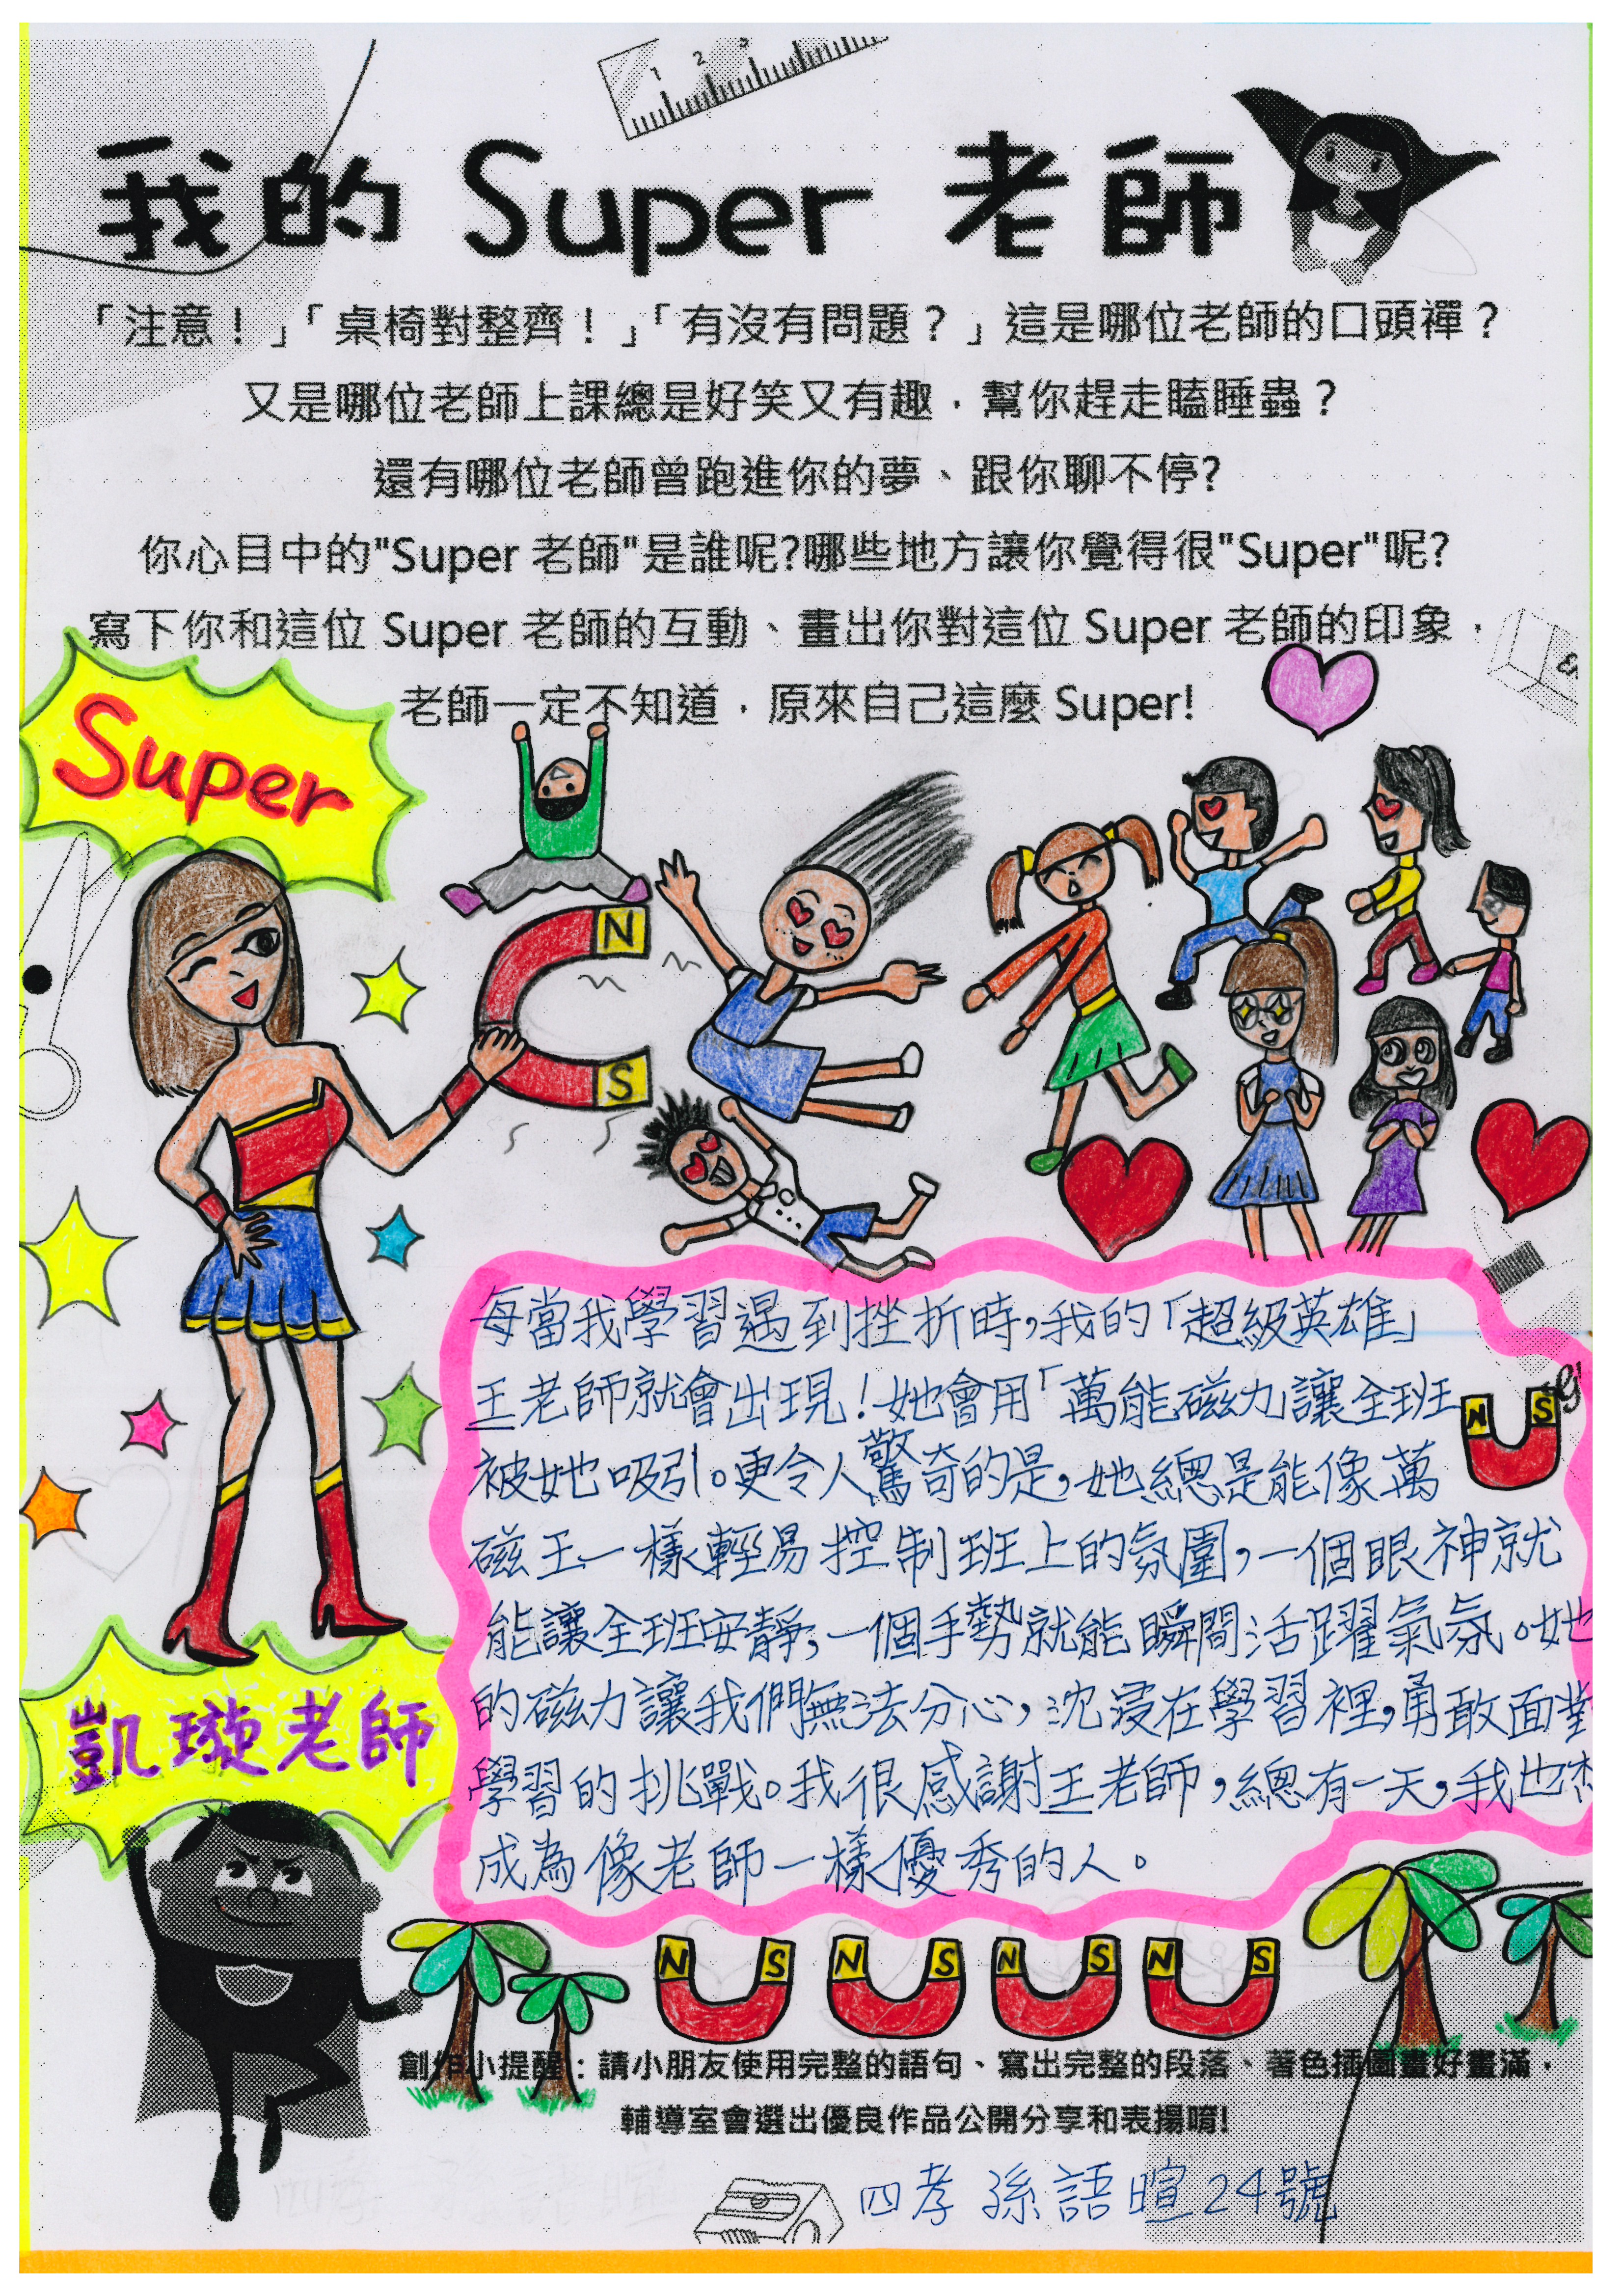 我的 Super 老師
「注意！」「桌椅對整齊！」「有沒有問題？」這是哪位老師的口頭禪？
又是哪位老師上課總是好笑又有趣，幫你趕走瞌睡蟲？
還有哪位老師曾跑進你的夢、跟你聊不停?
你心目中的"Super 老師"是誰呢?哪些地方讓你覺得很"Super"呢?
寫下你和這位 Super 老師的互動、畫出你對這位 Super 老師的印象，
老師一定不知道，原來自己這麼 Super!
Super
N
S
每當我學習遇到挫折時，我的「超級英雄」
王老師就會出現！她會用「萬能磁力」讓全班
被她吸引。更令人驚奇的是，她總是能像萬
磁王一樣輕易控制班上的氛圍，一個眼神就
能讓全班安靜，一個手勢就能瞬間活躍氣氛。她
的磁力讓我們無法分心，沈浸在學習裡，勇敢面對
學習的挑戰。我很感謝王老師，總有一天，我也
成為像老師一樣優秀的人。
N S
凱璇老師
N S N S N S N S
創作小提醒：請小朋友使用完整的語句、寫出完整的段落、著色插圖畫好畫滿，
輔導室會選出優良作品公開分享和表揚唷!
四孝 孫語暄 24號
1 2 3